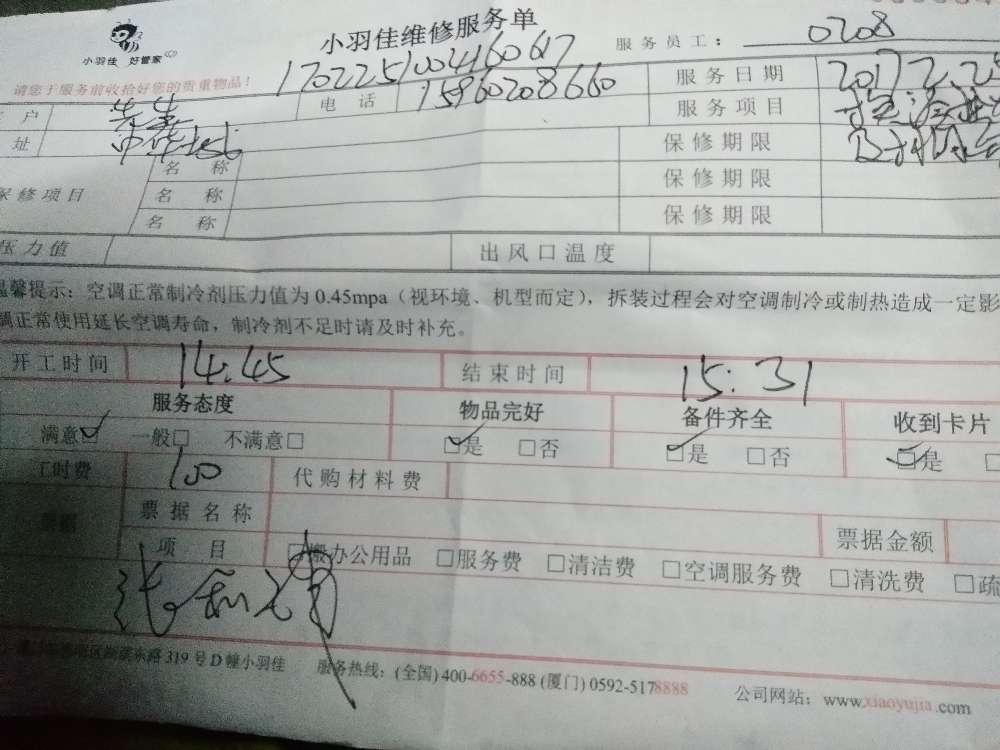 小羽佳维修服务单
小羽佳 好管家
服务员工: 0208
请您于服务前收拾好您的贵重物品! 1702251004160617
户 先生 电话 15960208660 服务日期 2017.2.25
址 中华城 服务项目
保修期限
保修项目 名称 保修期限
名称 保修期限
名称
压力值 出风口温度
温馨提示: 空调正常制冷剂压力值为 0.45mpa (视环境、机型而定), 拆装过程会对空调制冷或制热造成一定影
调正常使用延长空调寿命, 制冷剂不足时请及时补充。
开工时间 14.45 结束时间 15:31
服务态度 物品完好 备件齐全 收到卡片
满意☑ 一般□ 不满意□ ☑是 □否 ☑是 □否 ☑是 □
工时费 100 代购材料费
票据 票据名称 票据金额
项目 □搬办公用品 □服务费 □清洁费 □空调服务费 □清洗费 □疏
东路 319 号 D 幢小羽佳 服务热线: (全国) 400-6655-888 (厦门) 0592-5178888 公司网站: www.xiaoyujia.com